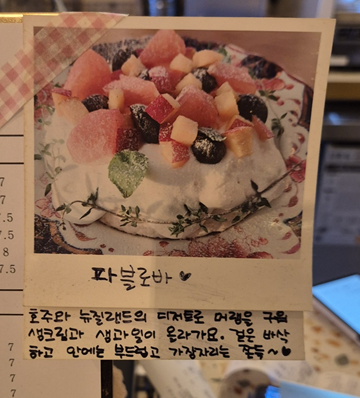 파블로바♥
호주와 뉴질랜드의 디저트로 머랭을 구워
생크림과 생과일이 올라가요. 겉은 바삭
하고 안에는 부드럽고 가장자리는 쫀득~♥
7
7
7.5
7.5
8
7.5
7
7
7
7